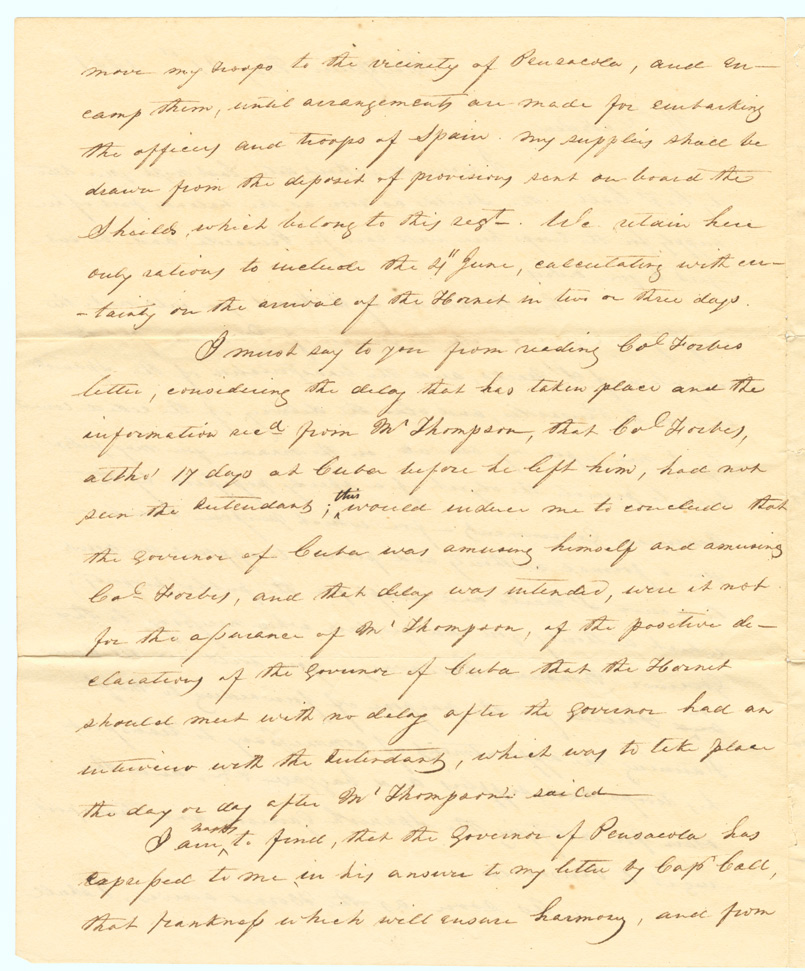 move my troops to the vicinity of Pensacola, and en-
camp them, until arrangements are made for embarking
the officers and troops of Spain. my supplies shall be
drawn from the deposit of provisions sent on board the
Shields, which belong to this regt. We retain here
only rations to include the 4" June, calculating with cer-
-tainty on the arrival of the Hornet in two or three days.
I must say to you from reading Col Forbes
letter, considering the delay that has taken place and the
information recd from Mr Thompson, that Col Forbes,
altho' 17 days at Cuba before he left him, had not
seen the Intendant; this would induce me to conclude that
the Govenor of Cuba was amusing himself and amusing
Col Forbes, and that delay was intended, were it not
for the assurance of Mr Thompson, of the positive de-
clarations of the Govenor of Cuba that the Hornet
should meet with no delay after the Govenor had an
interview with the Intendant, which was to take place
the day or day after Mr Thompson sailed
I am happy to find, that the Govenor of Pensacola has
expressed to me in his answer to my letter by Capt Call,
that frankness which will ensure harmony, and from